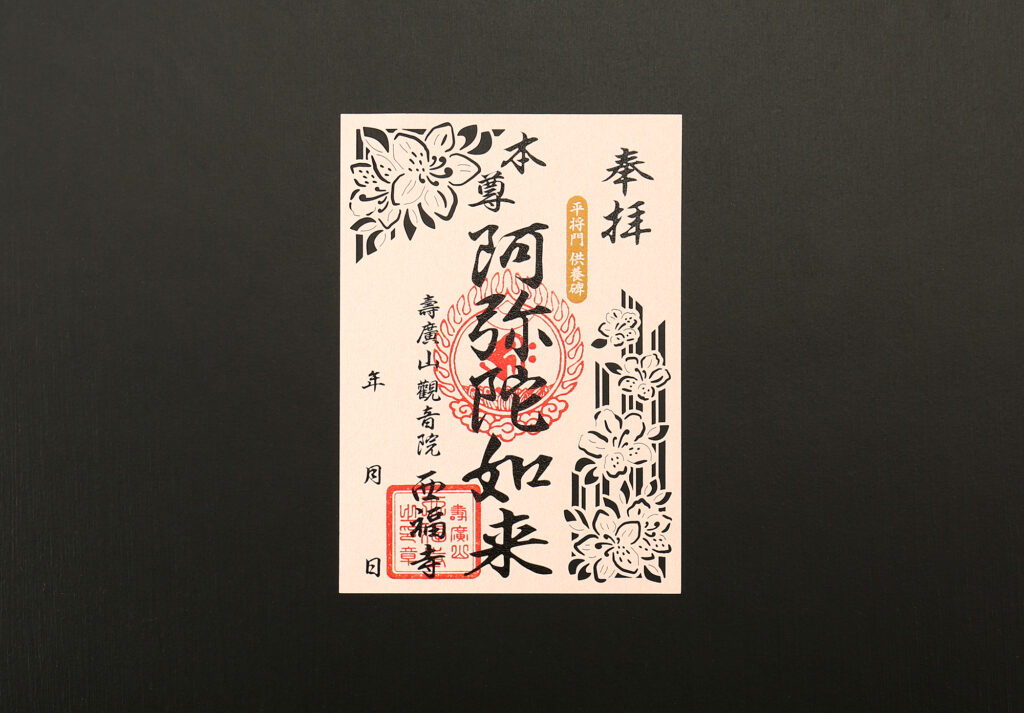 奉拝
平将門 供養碑
本尊
阿弥陀如来
壽廣山觀音院 西福寺
壽廣山
年 月 日